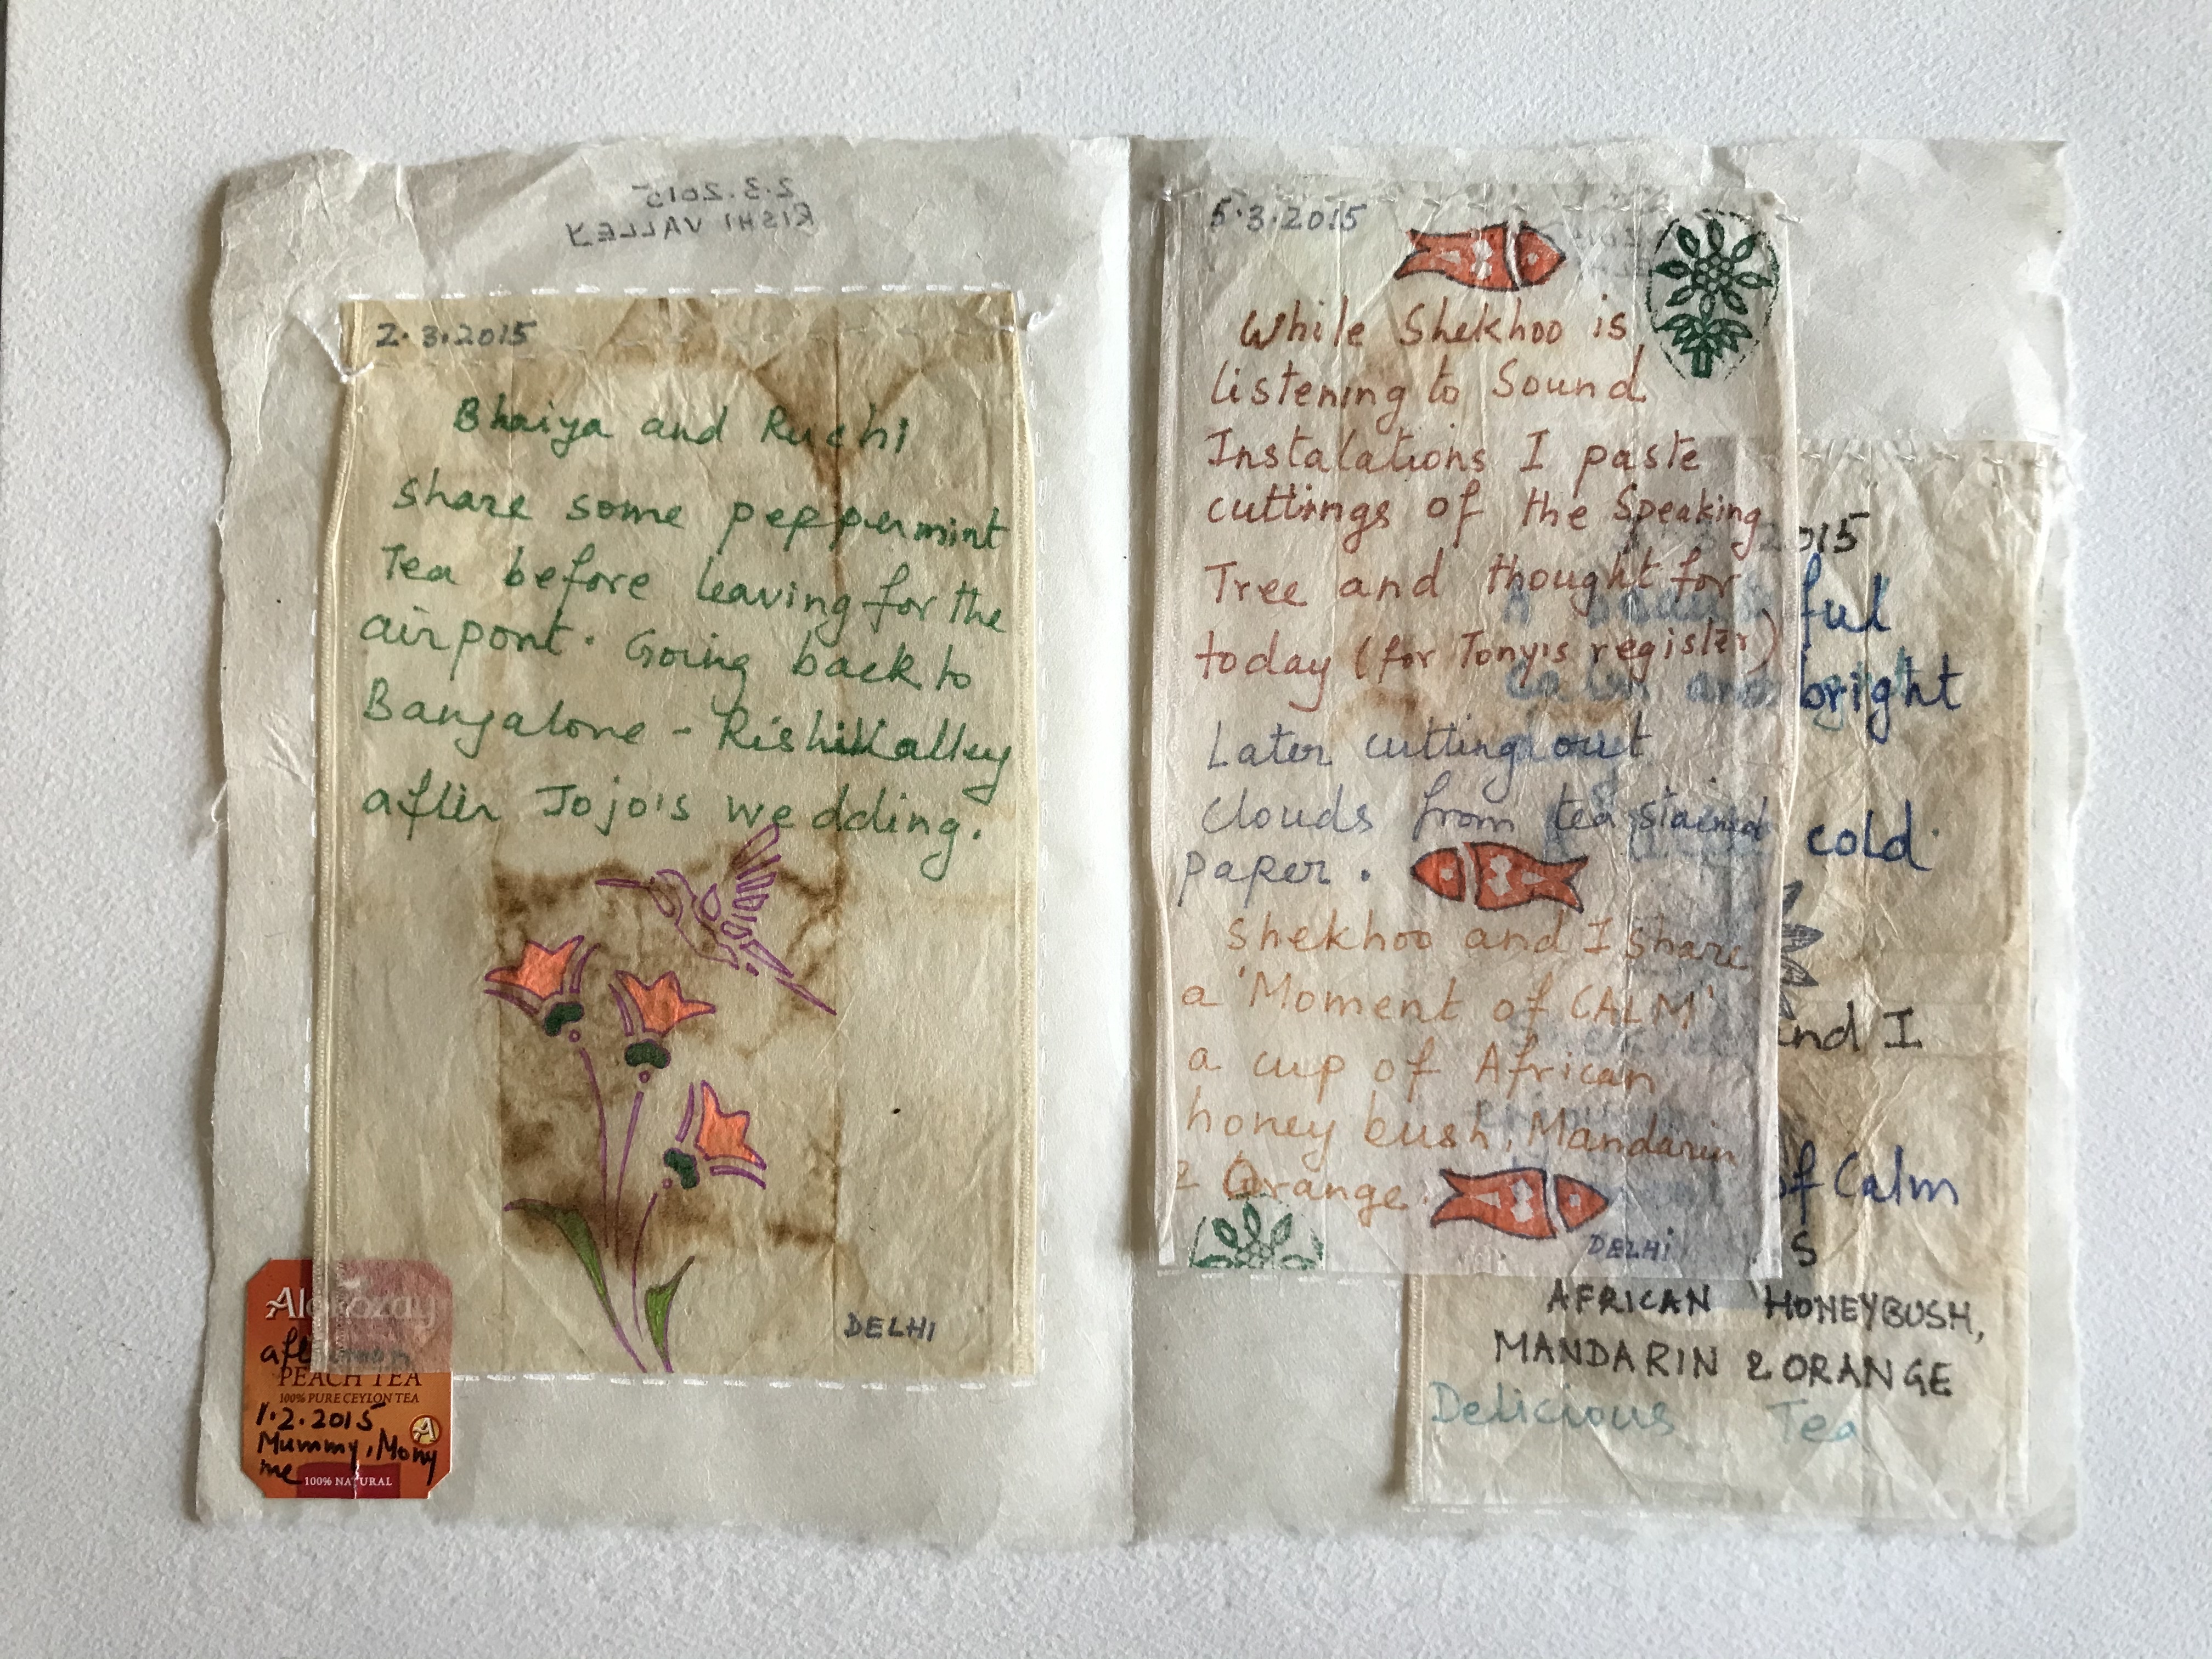 2.3.2015
RISHI VALLEY
2.3.2015
Bhaiya and Ruchi
share some peppermint
Tea before leaving for the
airport. Going back to
Bangalore - Rishi Valley
after Jojo's wedding.
DELHI
Alokozay
afternoon
PEACH TEA
100% PURE CEYLON TEA
1.2.2015
Mummy, Mony
me
100% NATURAL
5.3.2015
While Shekhoo is
listening to Sound
Instalations I paste
cuttings of the Speaking
Tree and thought for
today (for Tony's register)
Later cutting out
clouds from tea stained
paper.
Shekhoo and I share
a 'Moment of CALM'
a cup of African
honey bush, Mandarin
& Orange.
DELHI
2015
ful
Calm and bright
cold
and I
of Calm
s
AFRICAN HONEYBUSH,
MANDARIN & ORANGE
Delicious Tea